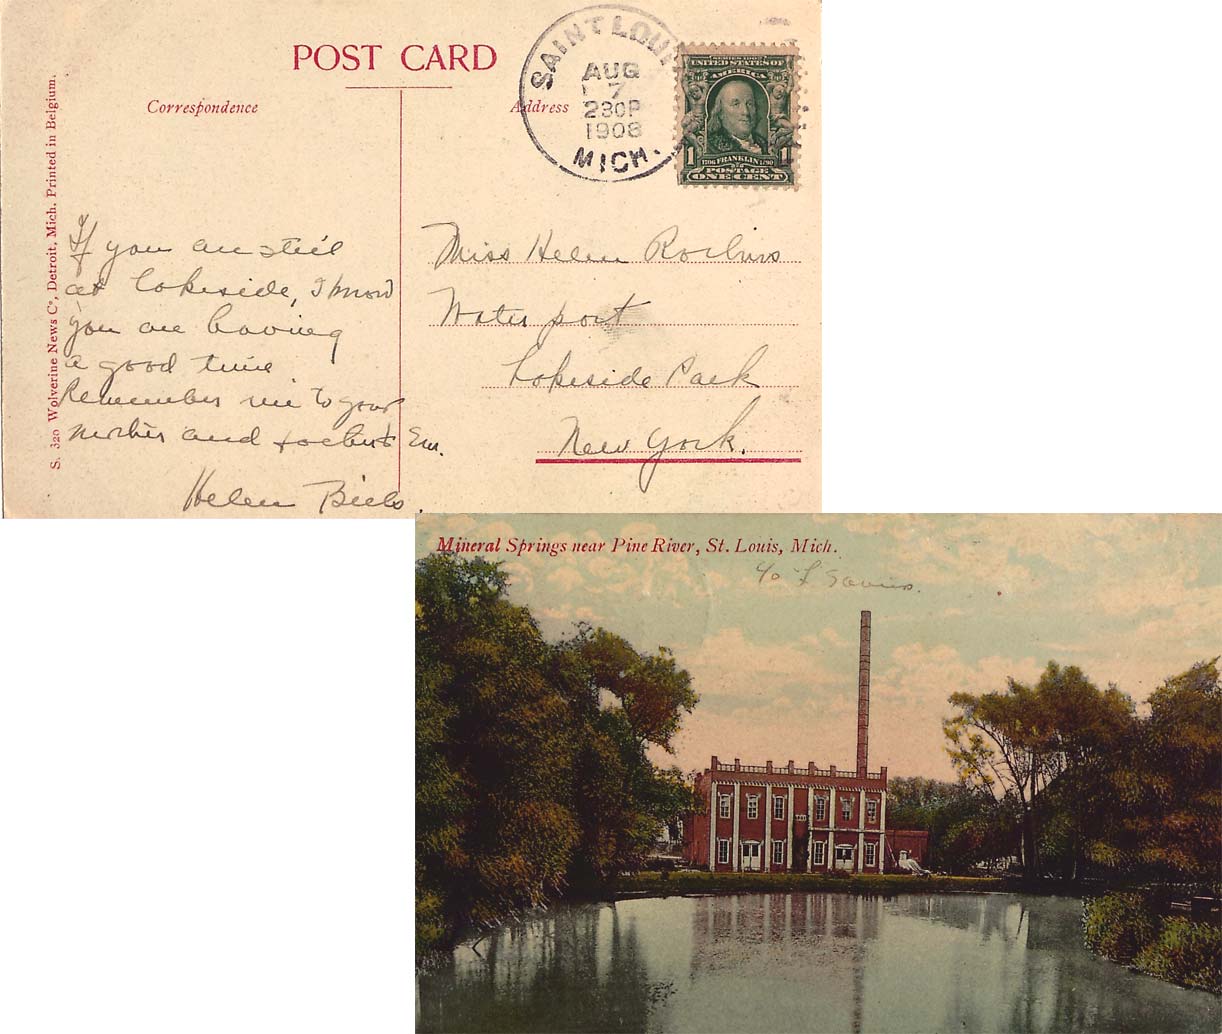 POST CARD
Correspondence
Address
SAINT LOUI
AUG
7
230P
1908
MICH.
SERIES 1902
UNITED STATES OF
AMERICA
1
1706 FRANKLIN 1790
POSTAGE
ONE CENT
S. 320 Wolverine News Co, Detroit, Mich. Printed in Belgium.
If you are still
at Lakeside, I know
you are having
a good time
Remember me to your
mother and
Helen
Miss Helen Robins
Water port
Lakeside Park
New York.
Mineral Springs near Pine River, St. Louis, Mich.
c/o